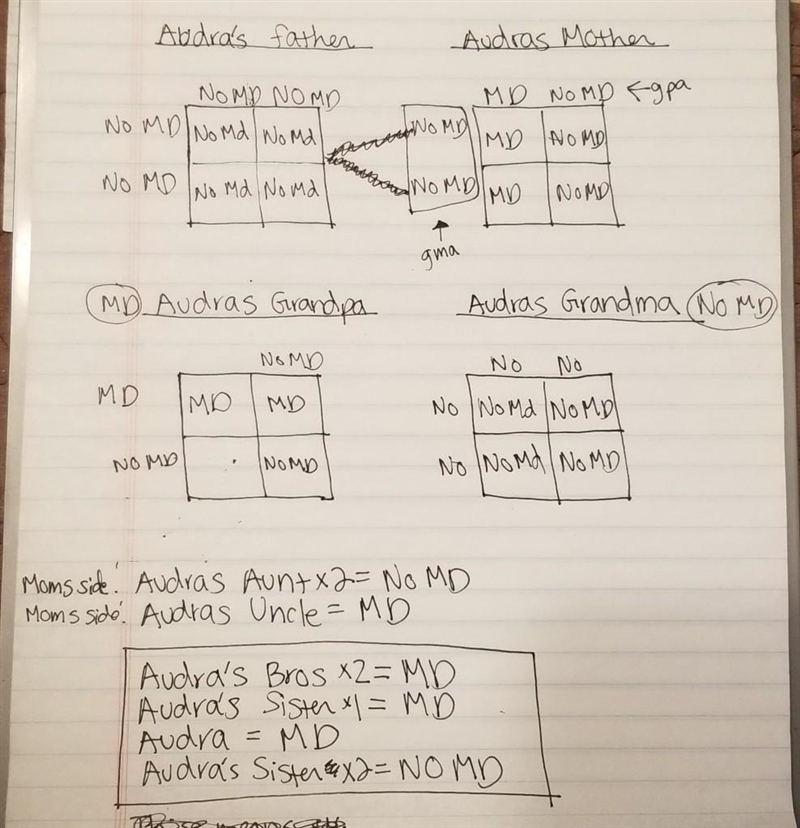 Abdra's father Audras Mother
No MD NO MD MD No MD ←gpa
No MD No Md No Md No MD MD No MD
No MD No Md No Md No MD MD No MD
gma
MD Audras Grandpa Audras Grandma No MD
No MD No No
MD MD MD No No Md No MD
No MD No MD No No Md No MD
Moms side: Audras Aunt x2 = No MD
Moms side: Audras Uncle = MD
Audra's Bros x2 = MD
Audra's Sister x1 = MD
Audra = MD
Audra's Sister x2 = NO MD